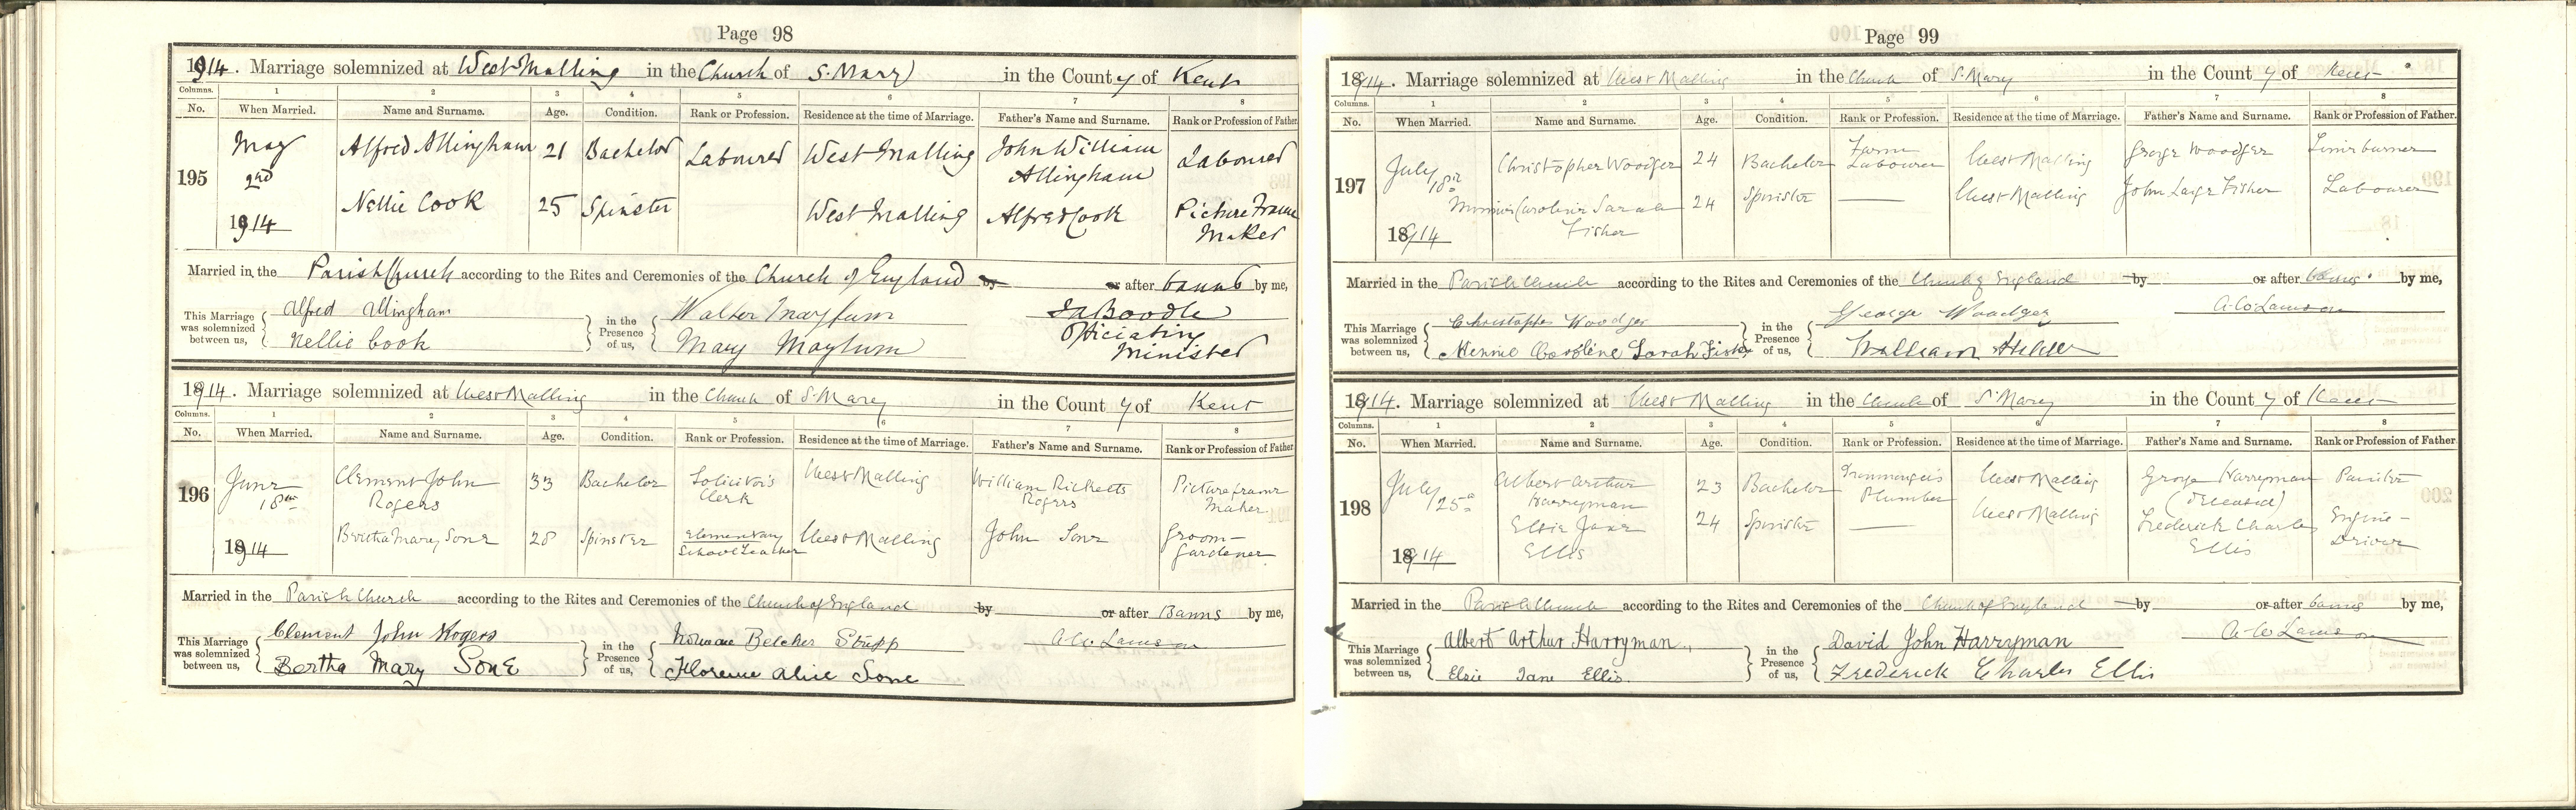 Page 98
1914. Marriage solemnized at West Malling in the Church of S. Mary in the County of Kent
Columns. 1 2 3 4 5 6 7 8
No. When Married. Name and Surname. Age. Condition. Rank or Profession. Residence at the time of Marriage. Father's Name and Surname. Rank or Profession of Father
195 May 2nd 1914 Alfred Allingham 21 Bachelor Labourer West Malling John William Allingham Labourer
Nellie Cook 25 Spinster West Malling Alfred Cook Picture Frame Maker
Married in the Parish Church according to the Rites and Ceremonies of the Church of England by or after banns by me,
This Marriage was solemnized between us, Alfred Allingham Nellie Cook in the Presence of us, Walter Maylum Mary Maylum
Boodle Officiating Minister
1914. Marriage solemnized at West Malling in the Church of S. Mary in the County of Kent
Columns. 1 2 3 4 5 6 7 8
No. When Married. Name and Surname. Age. Condition. Rank or Profession. Residence at the time of Marriage. Father's Name and Surname. Rank or Profession of Father
196 June 18th 1914 Clement John Rogers 33 Bachelor Solicitor's Clerk West Malling William Ricketts Rogers Picture frame Maker
Bertha Mary Sone 28 Spinster Elementary School Teacher West Malling John Sone Groom-Gardener
Married in the Parish Church according to the Rites and Ceremonies of the Church of England by or after Banns by me,
This Marriage was solemnized between us, Clement John Rogers Bertha Mary Sone in the Presence of us, Belcher Florence Alice Sone
Page 99
1914. Marriage solemnized at West Malling in the Church of S. Mary in the County of Kent
Columns. 1 2 3 4 5 6 7 8
No. When Married. Name and Surname. Age. Condition. Rank or Profession. Residence at the time of Marriage. Father's Name and Surname. Rank or Profession of Father.
197 July 18th 1914 Christopher Woodger 24 Bachelor Farm Labourer West Malling George Woodger Lime burner
Minnie Caroline Sarah Fisher 24 Spinster West Malling John Large Fisher Labourer
Married in the Parish Church according to the Rites and Ceremonies of the Church of England by or after banns by me,
This Marriage was solemnized between us, Christopher Woodger Minnie Caroline Sarah Fisher in the Presence of us, George Woodger William
1914. Marriage solemnized at West Malling in the Church of S. Mary in the County of Kent
Columns. 1 2 3 4 5 6 7 8
No. When Married. Name and Surname. Age. Condition. Rank or Profession. Residence at the time of Marriage. Father's Name and Surname. Rank or Profession of Father
198 July 25th 1914 Albert Arthur Harryman 23 Bachelor Ironmonger's Plumber West Malling George Harryman (deceased) Painter
Elsie Jane Ellis 24 Spinster West Malling Frederick Charles Ellis Engine-Driver
Married in the Parish Church according to the Rites and Ceremonies of the Church of England by or after banns by me,
This Marriage was solemnized between us, Albert Arthur Harryman Elsie Jane Ellis in the Presence of us, David John Harryman Frederick Charles Ellis